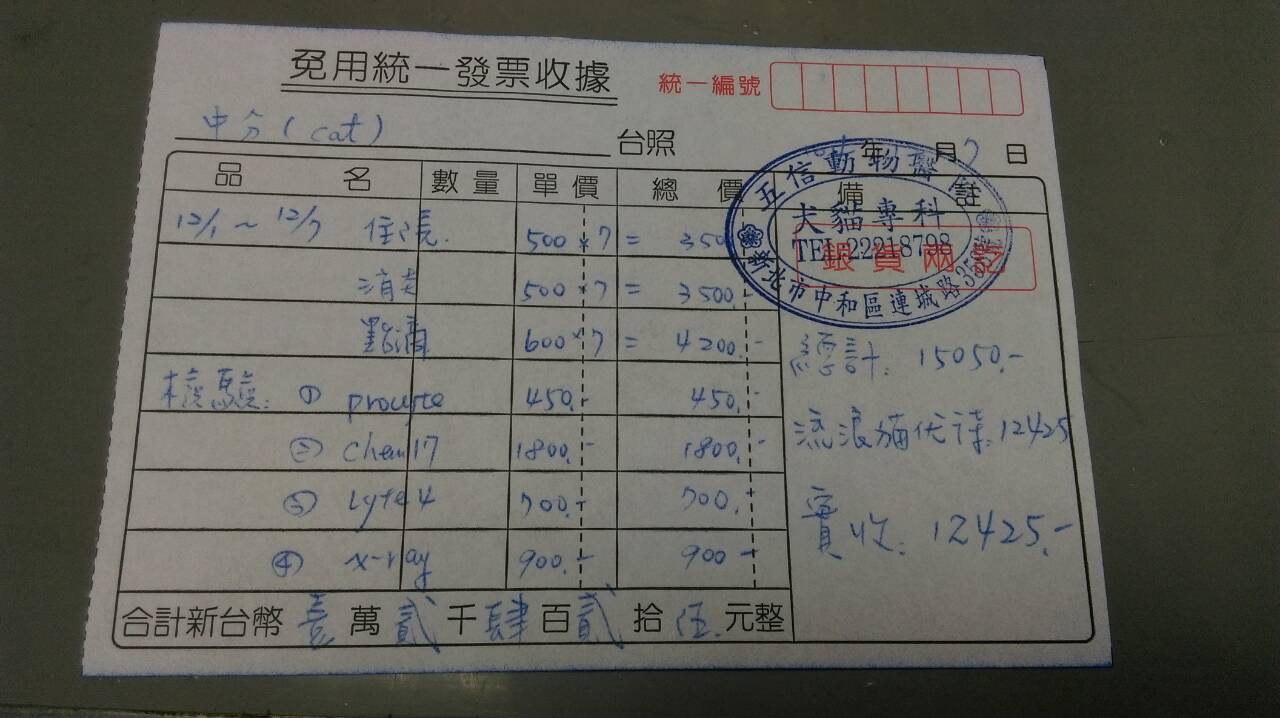 免用統一發票收據
統一編號
中分(cat) 台照
年 月 7 日
品名 數量 單價 總價 備註
五信動物醫
犬貓專科
TEL:22218798
銀貨兩訖
新北市中和區連城路353號
12/1 ~ 12/7 住院 500×7 = 3500
消炎 500×7 = 3500.-
點滴 600×7 = 4200.-
總計: 15050.-
檢驗: ① procyte 450.- 450.-
② chem17 1800.- 1800.-
流浪貓優待: 12425
③ Lyte 4 700.- 700.-
④ x-ray 900.- 900-
實收: 12425.-
合計新台幣 壹 萬 貳 千 肆 百 貳 拾 伍 元整